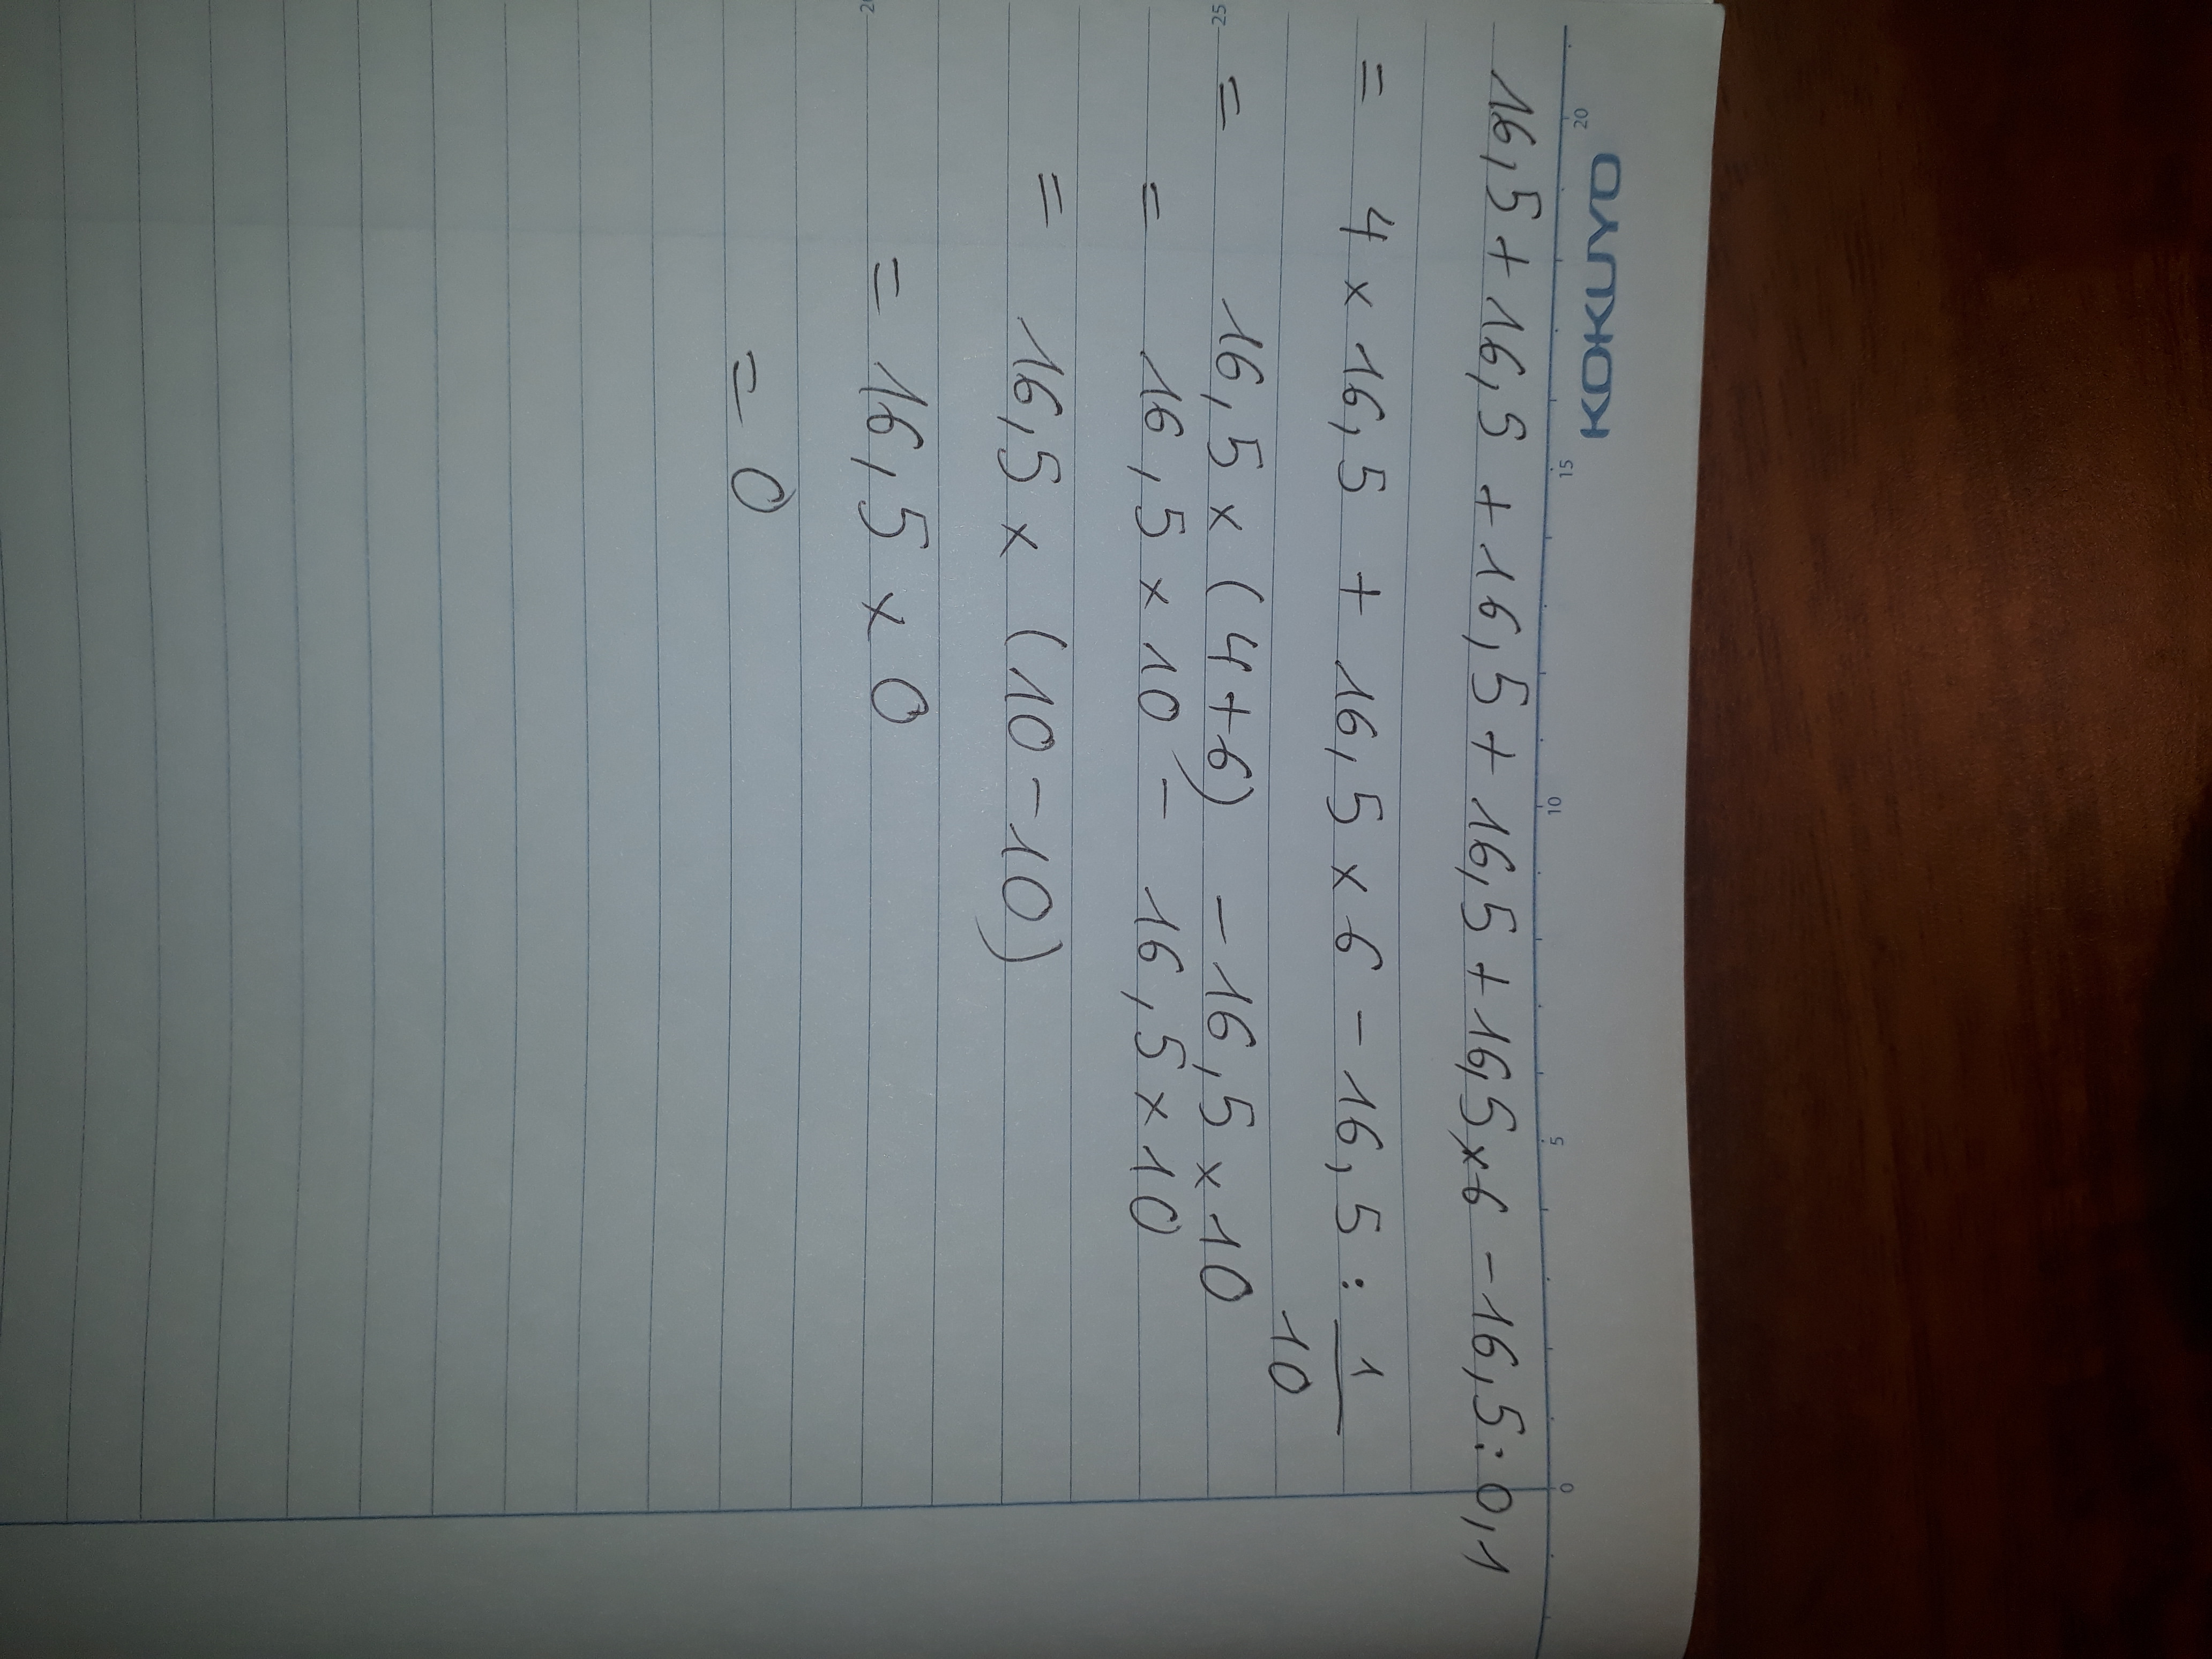 KOKUYO
20 15 10 5 0
16,5 + 16,5 + 16,5 + 16,5 + 16,5 x 6 - 16,5 : 0,1
= 4 x 16,5 + 16,5 x 6 - 16,5 : 1/10
25
= 16,5 x (4+6) - 16,5 x 10
= 16,5 x 10 - 16,5 x 10
= 16,5 x (10 - 10)
20
= 16,5 x 0
= 0